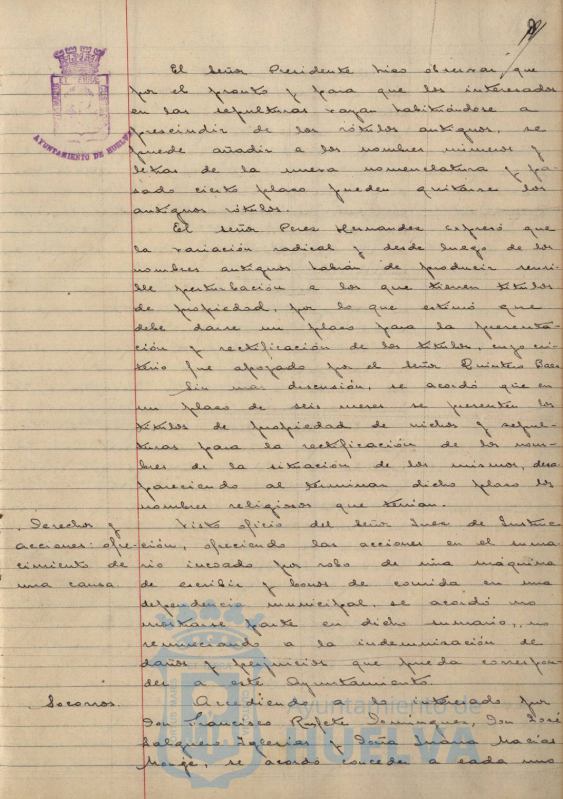 El Señor Presidente hizo observar que
por el pronto y para que los interesados
en las sepulturas vayan habituándose a
prescindir de los rótulos antiguos, se
puede añadir a los nombres números y
letras de la nueva nomenclatura y pa-
sado cierto plazo pueden quitarse los
antiguos rótulos.
El Señor Perez Hernandez expresó que
la variación radical y desde luego de los
nombres antiguos habrán de producir sensi-
ble perturbación a los que tienen títulos
de propiedad, por lo que estimó que
debe darse un plazo para la presenta-
ción y rectificación de los títulos, cuyo cri-
terio fue apoyado por el Señor Quintero Baez
Sin mas discusión, se acordó que en
un plazo de seis meses se presenten los
títulos de propiedad de nichos y sepul-
turas para la rectificación de los nom-
bres de la situación de los mismos, desa-
pareciendo al terminar dicho plazo los
nombres religiosos que tenían.
Derechos y
acciones: ofre-
cimiento de
una causa.
Visto oficio del Señor Juez de Instruc-
ción, ofreciendo las acciones en el suma-
rio incoado por robo de una máquina
de escribir y bonos de comida en una
dependencia municipal, se acordó no
mostrarse parte en dicho sumario, no
renunciando a la indemnización de
daños y perjuicios que pueda correspon-
der a este Ayuntamiento.
Socorros.
Accediendo a lo interesado por
Don Francisco Rufete Dominguez, Don José
Salguero Iglesias y Doña Juana Macías
Monge, se acordó conceder a cada uno
AYUNTAMIENTO DE HUELVA
Ayuntamiento de
HUELVA